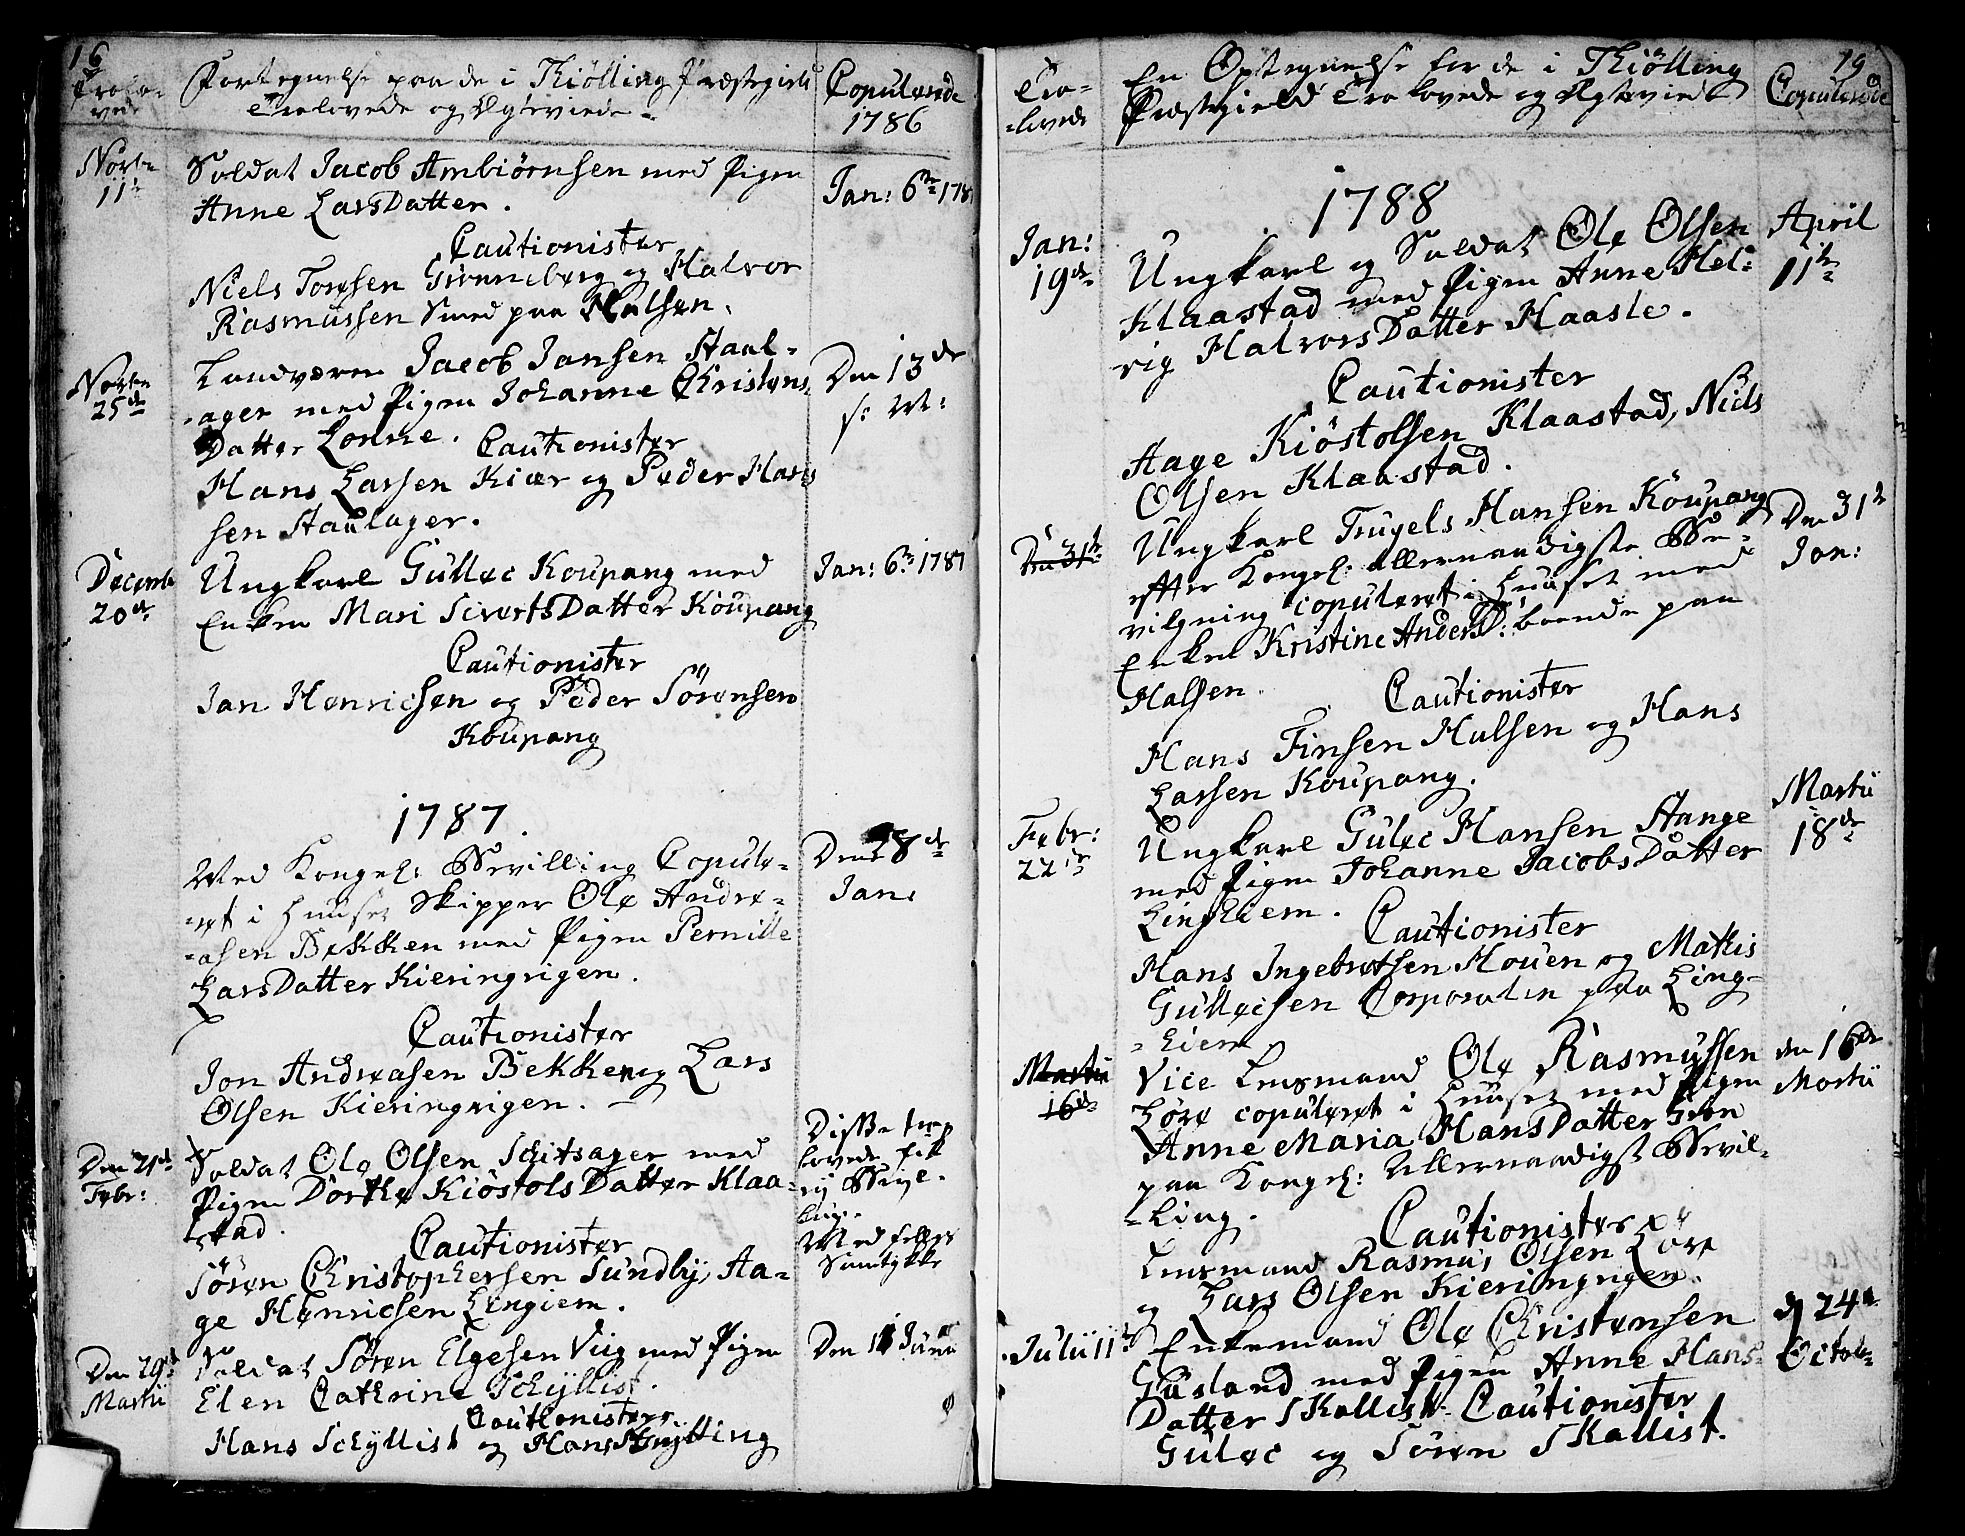 16
Trolo-
vede
Fortegnelse paa de i Thiölling Præstegield
Trolovede og Ægteviede
Copulerede
1786
Novbr
11te
Soldat Jacob Ambiörnsen med Pigen
Anne LarsDatter.
Jan: 6te 1787
Cautionister
Niels Toresen Grønneberg og Halvor
Rasmussen Smed paa Halsen.
Novbr
25de
Landværn Jacob Jansen Staul-
-ager med Pigen Johanne Christens
Datter Lonne.
Den 13de
s: M:
Cautionister
Hans Larsen Kiær og Peder Hans
sen Staulager.
Decemb
20de
Ungkarl Gullec Koupang med
Enken Mari SivertsDatter Koupang
Jan: 6te 1787
Cautionister
Jan Henricsen og Peder Sörensen
Koupang
1787.
Med Kongel: Bevilling Copule-
-ret i Huuset Skipper Ole Andre-
-asen Bekken med Pigen Pernille
LarsDatter Kieringvigen.
Den 8de
Jan:
Cautionister
Jon Andreasen Bekken og Lars
Olsen Kieringvigen.
Den 21de
Febr:
Soldat Ole Olsen Schitsager med
Pigen Dorthe KiöstolsDatter Klaa-
stad.
Disse tro-
lovede fik
ey
Med felles
Samtykke
Cautionister
Sören Christophersen Sundby, Aa-
ge Henricsen Lingiem.
Den 29de
Martii
Soldat Sören Elgesen Viig med Pigen
Elen Cathrine Schyllist.
Den 11 Junii
Cautionister
Hans Schyllist og Hans

19
Tro-
-lovede
En Optegnelse for de i Thiölling
Præstegield Trolovede og Ægteviede
Copulerede
1788
Jan:
19de
Ungkarl og Soldat Ole Olsen
Klaastad med Pigen Anne Hel-
vig HalvorsDatter Haasle.
April
11te
Cautionister
Aage Kiöstolsen Klaastad, Niels
Olsen Klaastad.
Den 31te
Ungkarl Trugels Hansen Koupang
efter Kongel: allernaadigste Be-
vilgning copuleret i Huuset med
Enken Kristine AndersD: boende paa
Halsen.
Den 31te
Jan:
Cautionister
Hans Finsen Halsen og Hans
Larsen Koupang.
Febr:
22de
Ungkarl Gulec Hansen Hange
med Pigen Johanne JacobsDatter
Linghiem.
Martii
18de
Cautionister
Hans Ingebretsen Houen og Mathis
Gullecsen Corporalen paa Ling-
-hiem
Martii
16de
Vice Lensmand Ole Rasmussen
Löve copuleret i Huuset med Pigen
Anne Maria HansDatter
paa Kongel: Allernaadigst Bevil-
-ling.
den 16de
Martii
Cautionister
Lensmand Rasmus Olsen Löve
og Lars Olsen Kieringvigen.
Julii 11te
Enkemand Ole Christensen
Gusland med Pigen Anne Hans-
Datter Skallist
d 24de
Octobr
Cautionister
Gulec og Sören Skallist.